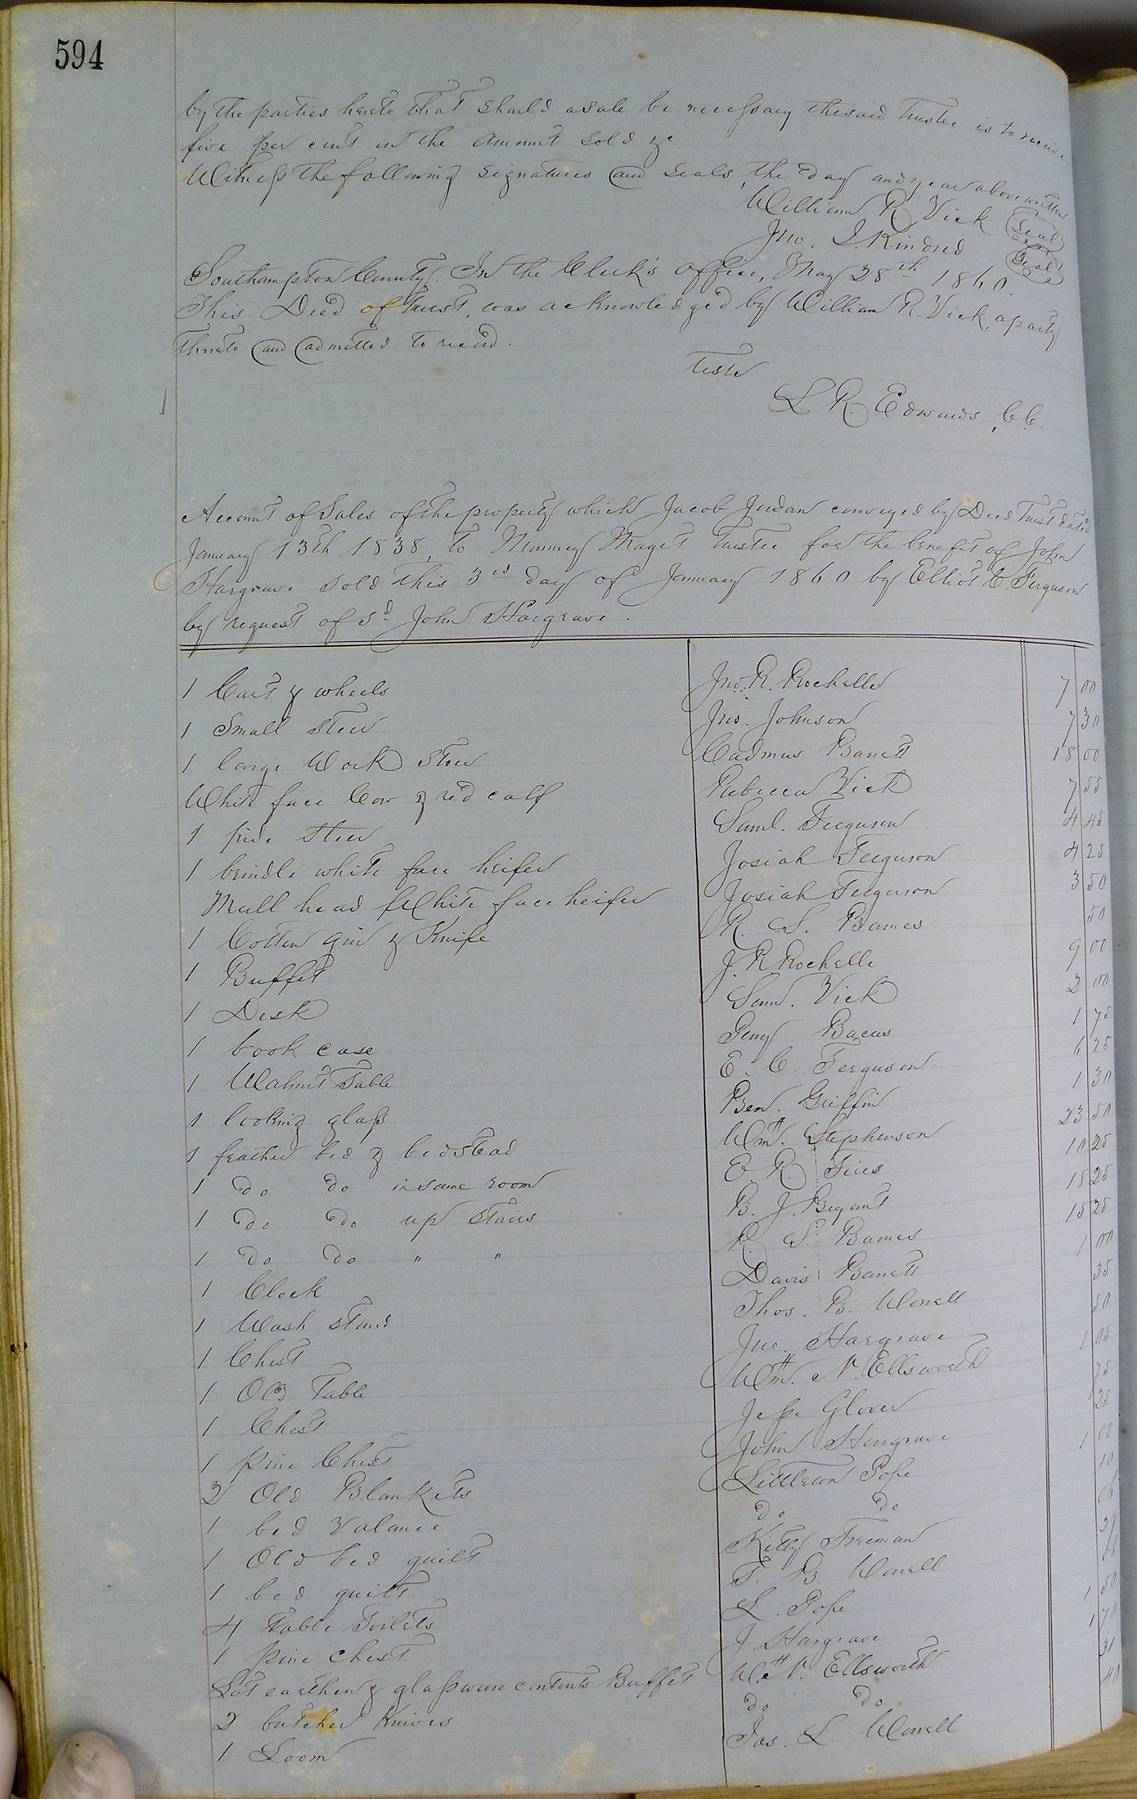 594
by the parties hereto that should a sale be necessary the said Trustee is to receive
five per cent on the amount sold &c
Witness the following signatures and seals, the day and year above written
William R. Vick (Seal)
Jno. J. Kindred (Seal)
Southampton County. In the Clerk's office, May 28th 1860.
This Deed of Trust, was acknowledged by William R. Vick, a party
thereto and admitted to record.
Teste
L. R. Edwards, C. C.
Account of Sales of the property which Jacob Judan conveyed by Deed Trust dated
January 13th 1838, to Nunney Maget Trustee for the benefit of John
Hargrave sold this 3rd day of January 1860 by Elliot C. Ferguson
by request of sd. John Hargrave.
1 Cart & wheels Jno. R. Rochelle 7 00
1 Small steer Jno. Johnson 7 30
1 large Work Steer Cadmus Barrett 18 00
White face Cow & red calf Rebecca Vick 7 55
1 pide steer Saml. Ferguson 4 45
1 brindle white face heifer Josiah Ferguson 4 25
Mull head & White face heifer Josiah Ferguson 3 50
1 Cotton gin & Knife R. S. Barnes 50
1 Buffet J. R. Rochelle 9 00
1 Desk Saml. Vick 2 00
1 book case 1 75
1 Walnut Table E. C. Ferguson 6 25
1 looking glass Ben. Griffin 1 30
1 feather bed & bedstead Wm. Stephenson 23 50
1 do do in same room E. R. 10 25
1 do do up stairs B. J. Bryant 18 25
1 do do " " R. S. Barnes 15 25
1 Clock Davis Barrett 1 00
1 Wash stand Thos. B. Worrell 35
1 Chest Jno. Hargrave 50
1 Old Table Wm. N. Ellsworth 1 05
1 Chest Jesse Glover 75
1 pine Chest John Hargrave 25
2 Old Blankets Littleton Pope 1 00
1 bed valance do do 10
1 Old bed quilt Kitty Freeman 06
1 bed quilt T. B. Worrell
4 Table Toilets L. Pope
1 pine chest J. Hargrave 1 50
Lot earthen & glassware contents Buffet W. N. Ellsworth 1 70
2 butcher Knives do do 31
1 Loom Jos. L. Worrell 40